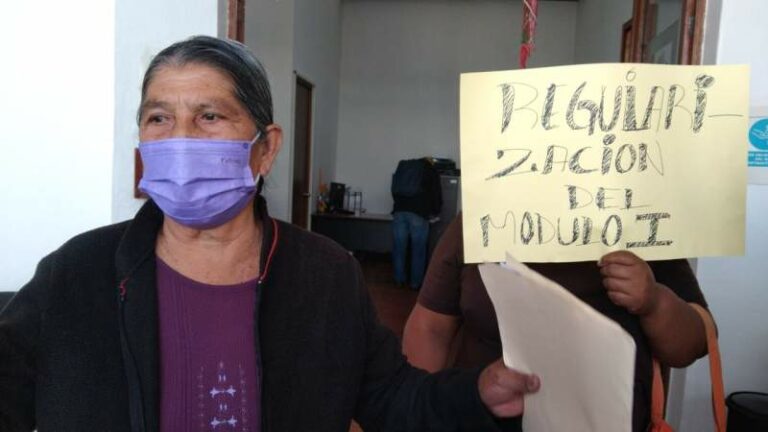 REGULARI-
ZACIÓN
DEL
MODULO I